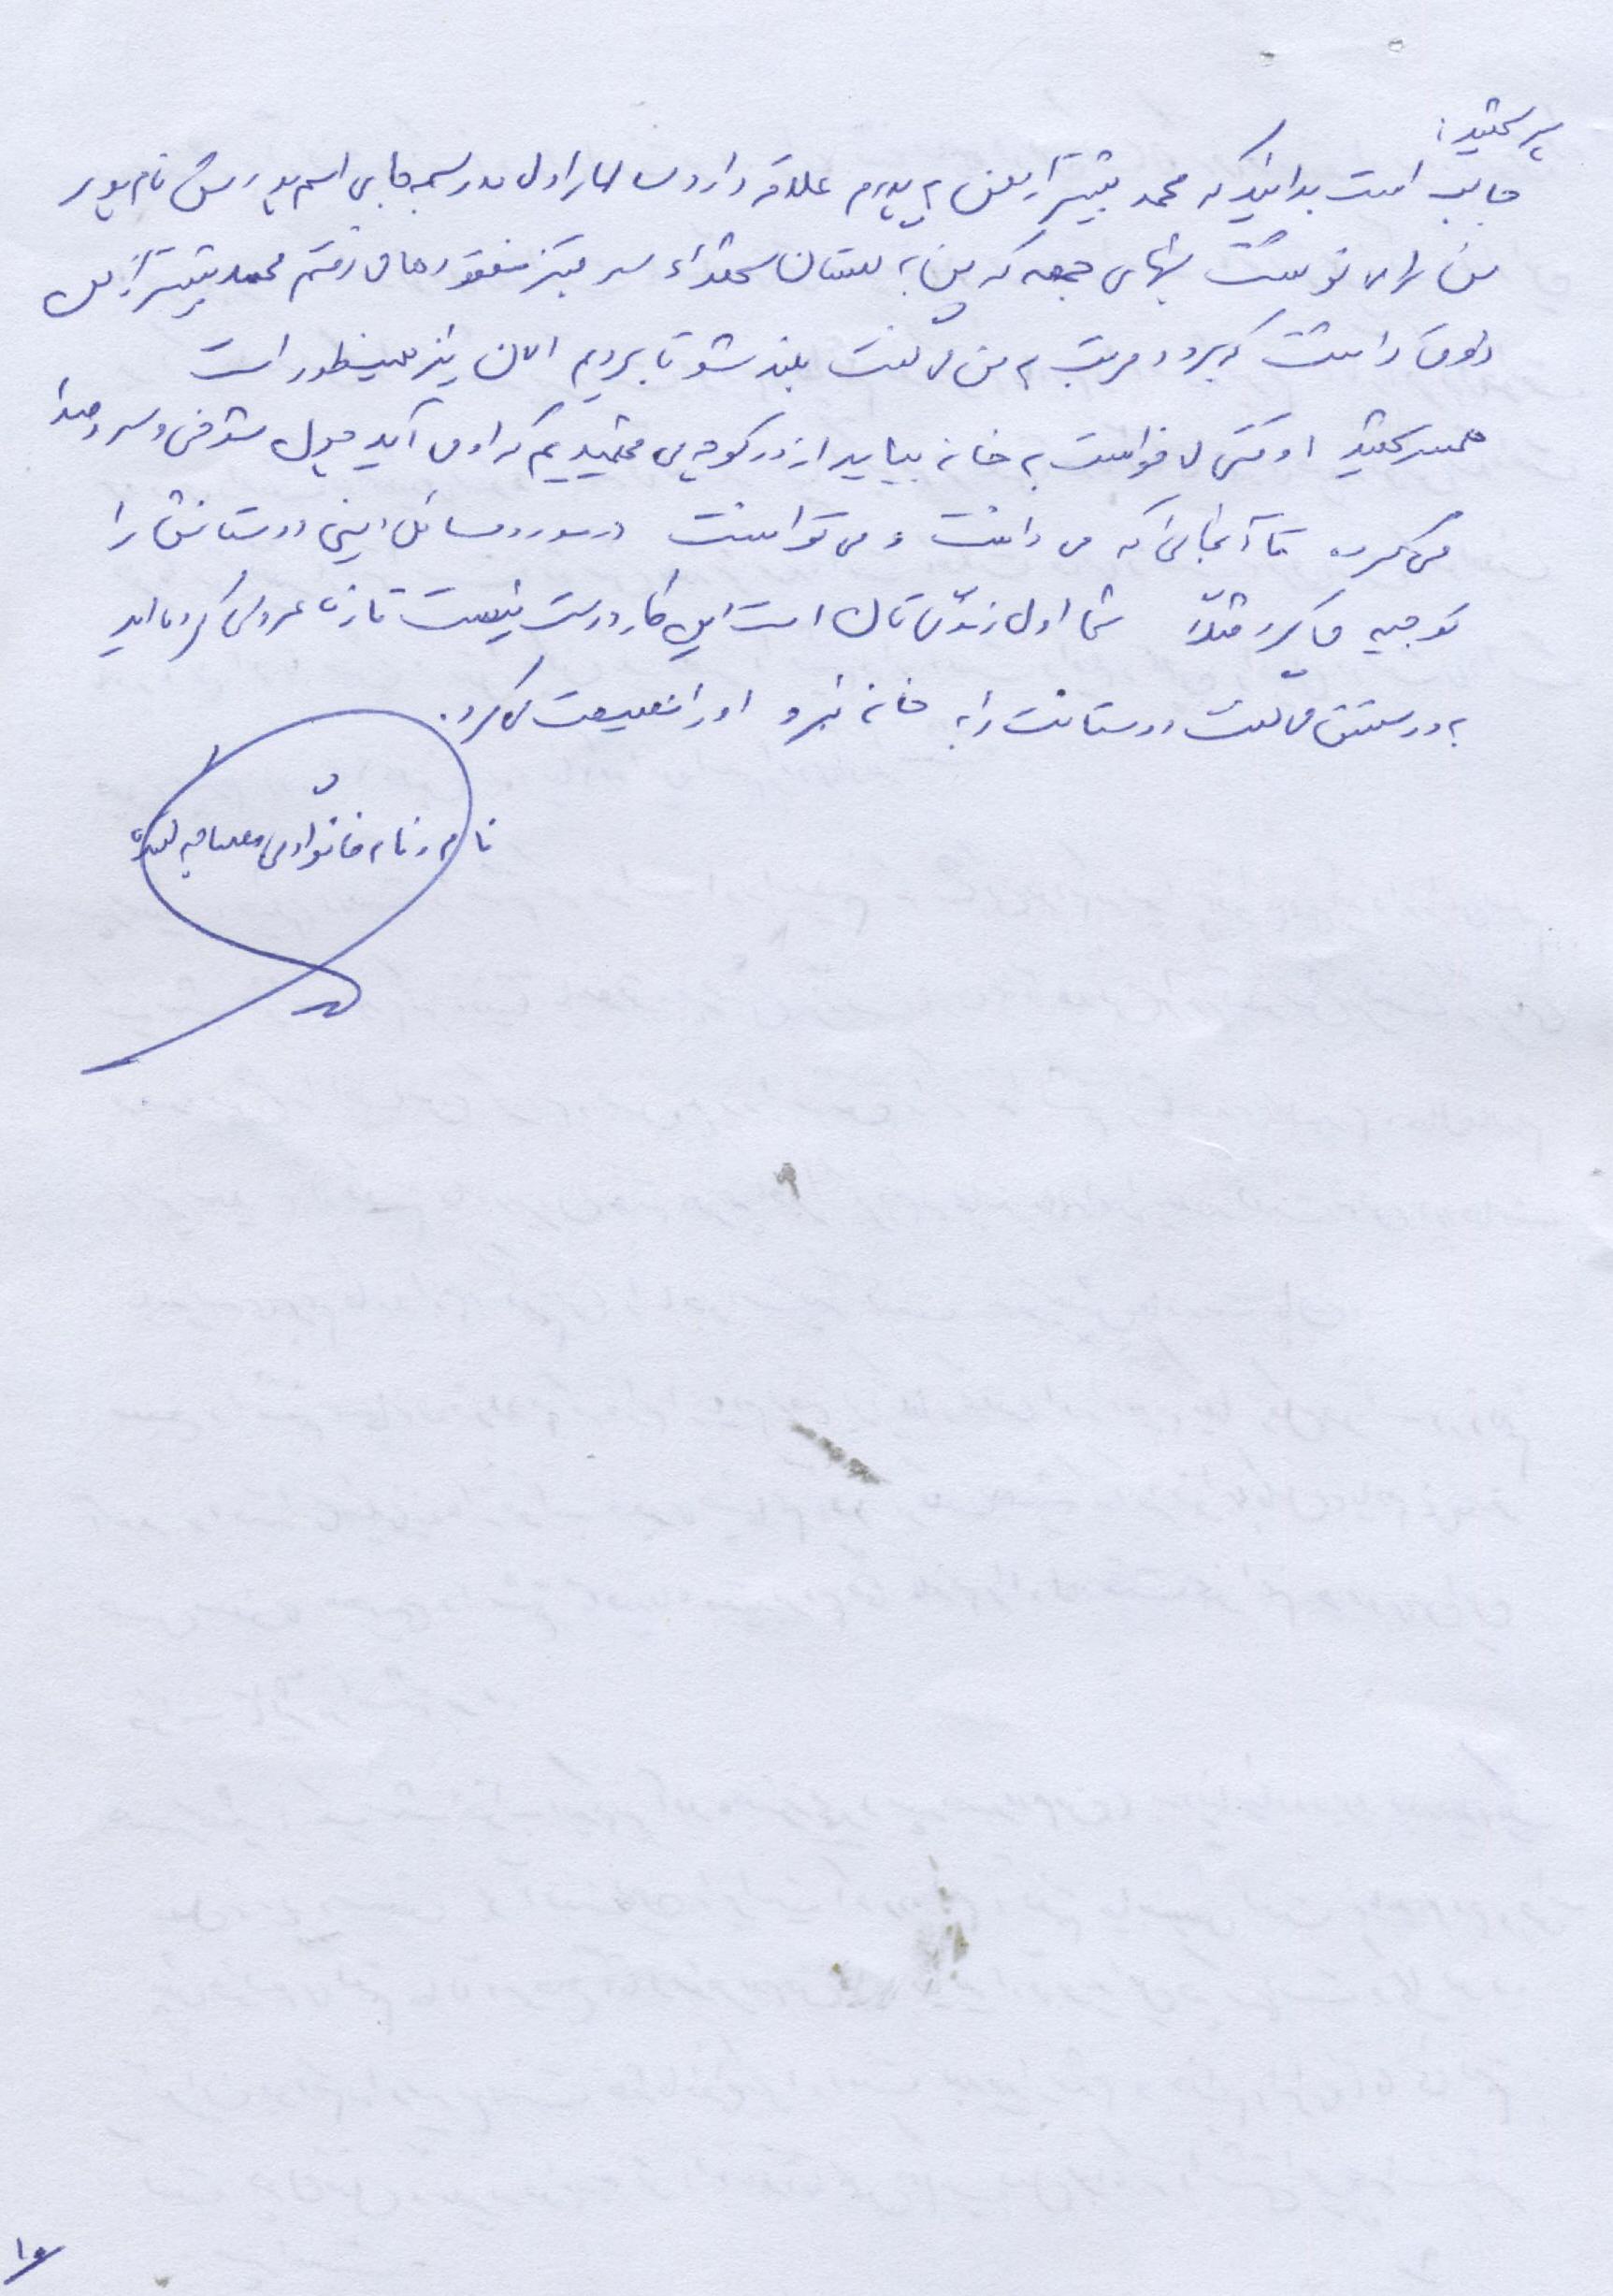 پدر شهید:
جالب است بدانید که محمد بیشتر از من به پدرم علاقه دارد سالهای اول مدرسه بجای اسم پدرش نام پدر
من را می نوشت شبهای جمعه که من به گلستان شهداء سر قبر مفقودها می رفتم محمد بیشتر از من
ذوق داشت که برود مرتب به من می گفت بلند شو تا برویم الان نیز همینطور است
همسر شهید او وقتی می خواست به خانه بیاید از در کوچه می فهمیدیم که او می آید چون شوخی و سر و صدا
می کرد. تا آنجائی که می دانست و می توانست در مورد مسائل دینی دوستانش را
توجیه می کرد مثلاً شما اول زندگی تان است این کار درست نیست تازه عروسی کرده اید
به دوستش می گفت دوستانت را به خانه نبر و او را نصیحت می کرد.
نام و نام خانوادگی مصاحبه کننده